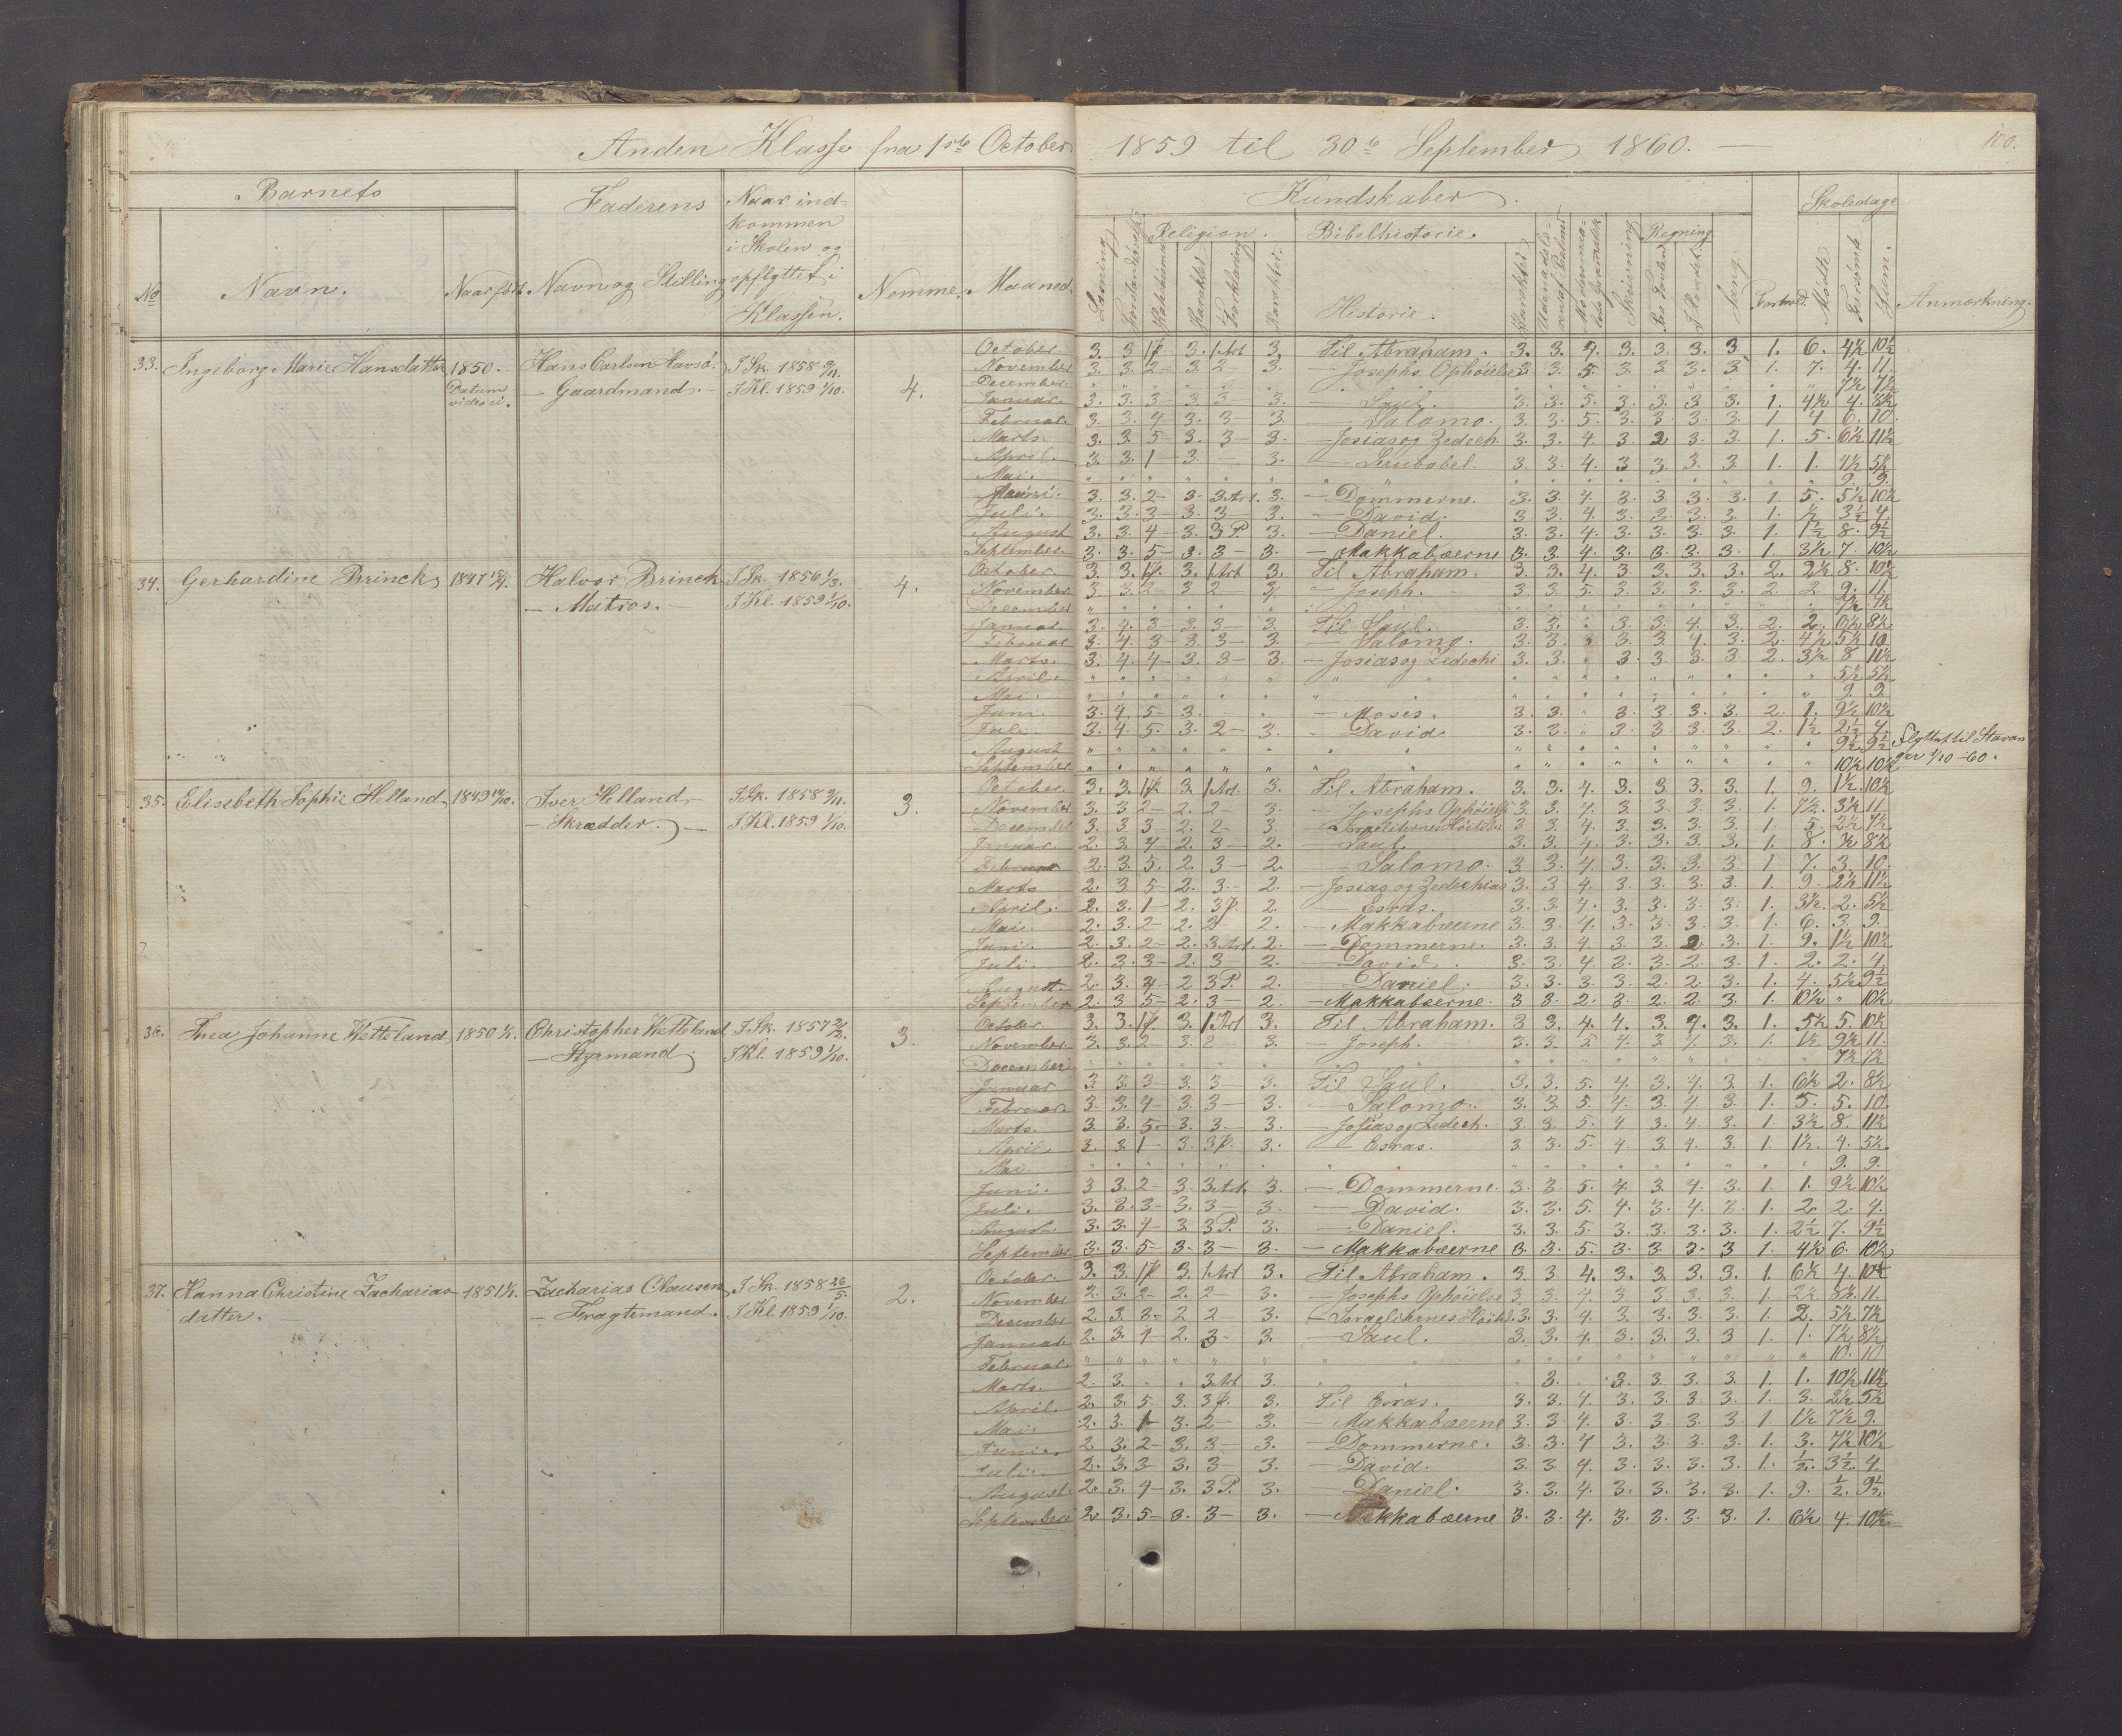 Anden Klasse fra 1ste October 1859 til 30te September 1860. —
100.
Barnets
Faderens
Naar ind-
kommen
i Skolen og
opflyttet i
Klassen.
No
Navn.
Naar født
Navn og Stilling
Nemme.
Maaned.
Kundskaber.
Skoledage
Religion.
Bibelhistorie.
Regning
Læsning
Karakter
Forklaring
Karakter.
Historie.
Karakter
Skrivning
Sang.
Forhold.
Mødte
Forsømt
Sum.
Anmærkning.
33. Ingeborg Marie Hansdatter 1850.
Datum
vides ei.
Hans Carlsen Havsö.
— Gaardmand. —
I Sk. 1858 9/11.
I Kl. 1859 1/10.
4.
October 3. 3. 1 P. 3. 1 Art 3. Til Abraham. 3. 3. 4. 3. 3. 3. 3. 1. 6. 4½ 10½
November 3. 3. 2 — 3 2 — 3. — Josephs Ophöielse 3. 3. 5. 3. 3. 3. 3. 1. 7. 4. 11.
December " " " " " " " " " 7½ 7½
Januar. 3. 3. 3 — 3. 3 — 3. — Saul. 3. 3. 5. 3. 3. 3. 3. 1. 4½ 4. 8½
Februar. 3. 3. 4 — 3. 3 — 3. — Salomo. 3. 3. 5. 3. 3. 3. 3. 1 4 6. 10.
Marts. 3. 3. 5 — 3. 3 — 3. — Josias og Zedech. 3. 3. 4. 3. 2 3. 3. 1. 5. 6½ 11½
April. 3. 3. 1 — 3. 3. — Serubabel. 3. 3. 4. 3 3. 3. 3. 1. 1. 4½ 5½
Mai. " " " " " " " " 9. 9.
Juni. 3. 3. 2 — 3. 3 Art. 3. — Dommerne. 3. 3. 4. 3. 3. 3. 3. 1. 5. 5½ 10½
Juli. 3. 3. 3 — 3. 3 — 3. — David. 3. 3. 4. 3. 3. 3. 3. 1. ½ 3½ 4.
August 3. 3. 4 — 3. 3 P. 3. — Daniel. 3. 3. 4. 3. 3. 3. 3. 1. 1½ 8. 9½
September. 3. 3. 5 — 3. 3 — 3. — Makkabæerne 3. 3. 4. 3. 3. 3. 3. 1 3½ 7. 10½
34. Gerhardine Brinck, 1847
Halvor Brinck
— Matros. —
I Sk. 1856 1/3.
I Kl. 1859 1/10.
4.
October 3. 3. 1 P. 3. 1 Art 3. Til Abraham. 3. 3. 4. 3. 3. 3. 3. 2. 2½ 8. 10½
November 3. 3. 2 — 3 2 — 3. — Joseph. 3. 3. 5. 3. 3. 3. 3. 2. 2. 9. 11.
December " " " " " " " " 7½ 7½
Januar. 3. 4. 3 — 3. 3 — 3. Til Saul. 3. 3. " 3. 3. 4. 3. 2. 2. 6½ 8½
Februar 3. 4. 3 — 3. 3 — 3. — Salomo. 3. 3. 3. 3. 4. 3. 2. 4½ 5½ 10
Marts. 3. 4. 4 — 3. 3 — 3. — Josias og Zedechi 3. 3. " 3. 3. 3. 3 2. 3½ 8 11½
April. " " " " " " " " 5½ 5½
Mai. " " " " " " " " 9. 9.
Juni. 3. 4. 5 — 3. — Moses. 3. 3. " 3. 3. 3. 3. 2. 1. 9½ 10½
Juli. 3. 4. 5. 3. 2 — 3. — David. 3. 3. " 3. 3. 3. 3. 2. 1½ 2½ 4.
August " " " " " " " " 9½ 9½
September " " " " " " " " 10½ 10½
Flyttet til Stavan
ger 1/10 – 60.
35. Elisebeth Sophie Helland, 1849
Iver Helland,
— Skrædder. —
I Sk. 1858 9/11.
I Kl. 1859 1/10.
3.
October. 3. 3. 1 P. 3. 1 Art. 3. Til Abraham. 3. 3. 4. 3. 3. 3. 3. 1. 9. 1½ 10½
November 3. 3 2 — 2. 2 — 3. — Josephs Ophöielse 3. 3. 4. 3. 3. 3. 3. 1. 7½. 3½ 11
December 3. 3 3 2. 2 — 3. — Israeliternes Höitider 3 3. 4. 3. 3. 3. 3. 1 5. 2½ 7½
Januar. 2. 3. 4 — 2. 3 — 2. — Saul. 3. 3. 4. 3. 3. 3. 3. 1. 8. ½ 8½
Februar 2. 3. 5. 2. 3 — 2. — Salomo. 3. 3. 4. 3. 3. 3. 3. 1 7. 3. 10.
Marts 2. 3 5 — 2. 3. — 2. — Josias og Zedechias 3. 3. 4. 3. 3. 3. 3. 1. 9. 2½ 11½
April. 2. 3. 1 — 2. 3 P. 2. — Esras. 3. 3. 4. 3. 3. 3. 3. 1. 3½. 2. 5½
Mai 2. 3. 2 — 2. 3 2. — Makkabæerne 3. 3. 4. 3. 3. 3. 3. 1. 6. 3. 9.
Juni. 2. 3. 2 — 2. 3 Art. 2. — Dommerne. 3. 3. 4. 3. 3. 2 3. 1. 9. 1½ 10½
Juli. 2. 3. 3 — 2. 3 — 2. — David. 3. 3. 4. 3. 3. 2. 3. 1. 2. 2. 4
August. 2. 3. 4 — 2. 3 P. 2. — Daniel. 3. 3. 3. 3. 2. 2. 3. 1. 4. 5½ 9½
September 2. 3 5 — 2. 3 — 2. — Makkabæerne. 3 3. 2. 3. 2. 2. 3. 1. 10½ " 10½
36. Thea Johanne Wetteland, 1850
Christopher Wetteland
— Styrmand.
I Sk. 1857
I Kl. 1859 1/10.
3.
October 3. 3. 1 P. 3. 1 Art 3. Til Abraham. 3 3. 4. 4. 3. 4. 3. 1. 5½ 5. 10½
November 3. 3. 2 — 3. 2 — 3. — Joseph. 3. 3. 5 4. 3. 4. 3. 1. 1½ 9½ 11.
December " " " " " " " " 7½ 7½
Januar 3. 3. 3 — 3. 3 — 3. Til Saul. 3. 3. 5. 4. 3. 4. 3. 1. 6½ 2. 8½
Februar 3. 3. 4 — 3. 3 — 3. — Salomo. 3. 3. 5. 4. 3. 4. 3. 1. 5. 5. 10
Marts. 3. 3. 5 — 3. 3. — 3. — Josias og Zedech. 3. 3. 5. 4 3. 4. 3. 1. 3½ 8. 11½
April 3. 3. 1 — 3. 3 P. 3. — Esras. 3 3. 5. 4 3. 4. 3. 1 1½. 4. 5½
Mai. " " " " " " " " 9. 9.
Juni. 3 3. 2 — 3. 3 Art. 3. — Dommerne. 3. 3. 5. 4. 3. 4. 3. 1. 1. 9½ 10½
Juli. 3. 3. 3 — 3. 3 — 3. — David. 3. 3. 5. 4. 3. 4. 3. 1. 2. 2. 4.
August. 3. 3. 4 — 3. 3 P. 3. — Daniel. 3. 3. 5. 3. 3. 3. 3. 1. 2½ 7. 9½
September 3. 3. 5 — 3. 3 — 3. — Makkabæerne 3. 3. 5. 3. 3. 3. 3 1. 4½ 6. 10½
37. Hanna Christine Zacharias- 1851
datter.
Zacharias Clausen,
— Fragtemand.
I Sk. 1858 26/5.
I Kl. 1859 1/10.
2.
October. 3. 3. 1 P. 3. 1 Art 3. Til Abraham. 3. 3. 4. 3. 3. 3. 3. 1. 6½ 4. 10½
November 2. 3. 2 — 2. 2 — 3. — Josephs Ophöielse 3. 3. 4. 3. 3. 3. 3. 1. 2½ 8½ 11.
December 2. 3. 3 — 2 2 — 3. — Israeliternes Höitid. 3. 3. 4. 3. 3. 3. 3. 1. 2. 5½ 7½
Januar. 2. 3. 4 — 2. 3 — 3. — Saul. 3. 3. 4. 3. 3. 3. 3 1. 1. 7½ 8½
Februar. " " " " " " " " 10. 10
Marts. 2. 3. " " 3 Art 3. " " 3. 3. 3. 3. 3. 1. 1. 10½ 11½
April. 2. 3. 5 — 3. 3 P. 3. Til Esras. 3. 3. 4. 3. 3. 3. 3. 1. 3. 2½ 5½
Mai. 2. 3. 1 — 3. 2 — 3. — Makkabæerne 3. 3. 4. 3. 3. 3. 3. 1. 1½ 7½ 9.
Juni. 2. 3. 2 — 3. 3 — 3. — Dommerne. 3. 3. 4. 3. 3. 3. 3. 1. 3. 7½ 10½
Juli. 2. 3. 3 — 3. 3 — 3. — David. 3. 3. 4. 3. 3. 3. 3. 1. ½. 3½ 4
August 2. 3. 4 — 3. 3 P. 3. — Daniel. 3. 3. 4. 3. 3. 3. 3. 1. 9. ½ 9½
September 2. 3. 5 — 3. 3 — 3. — Makkabæerne 3. 3. 4. 3. 3. 3. 3. 1. 6½ 4. 10½